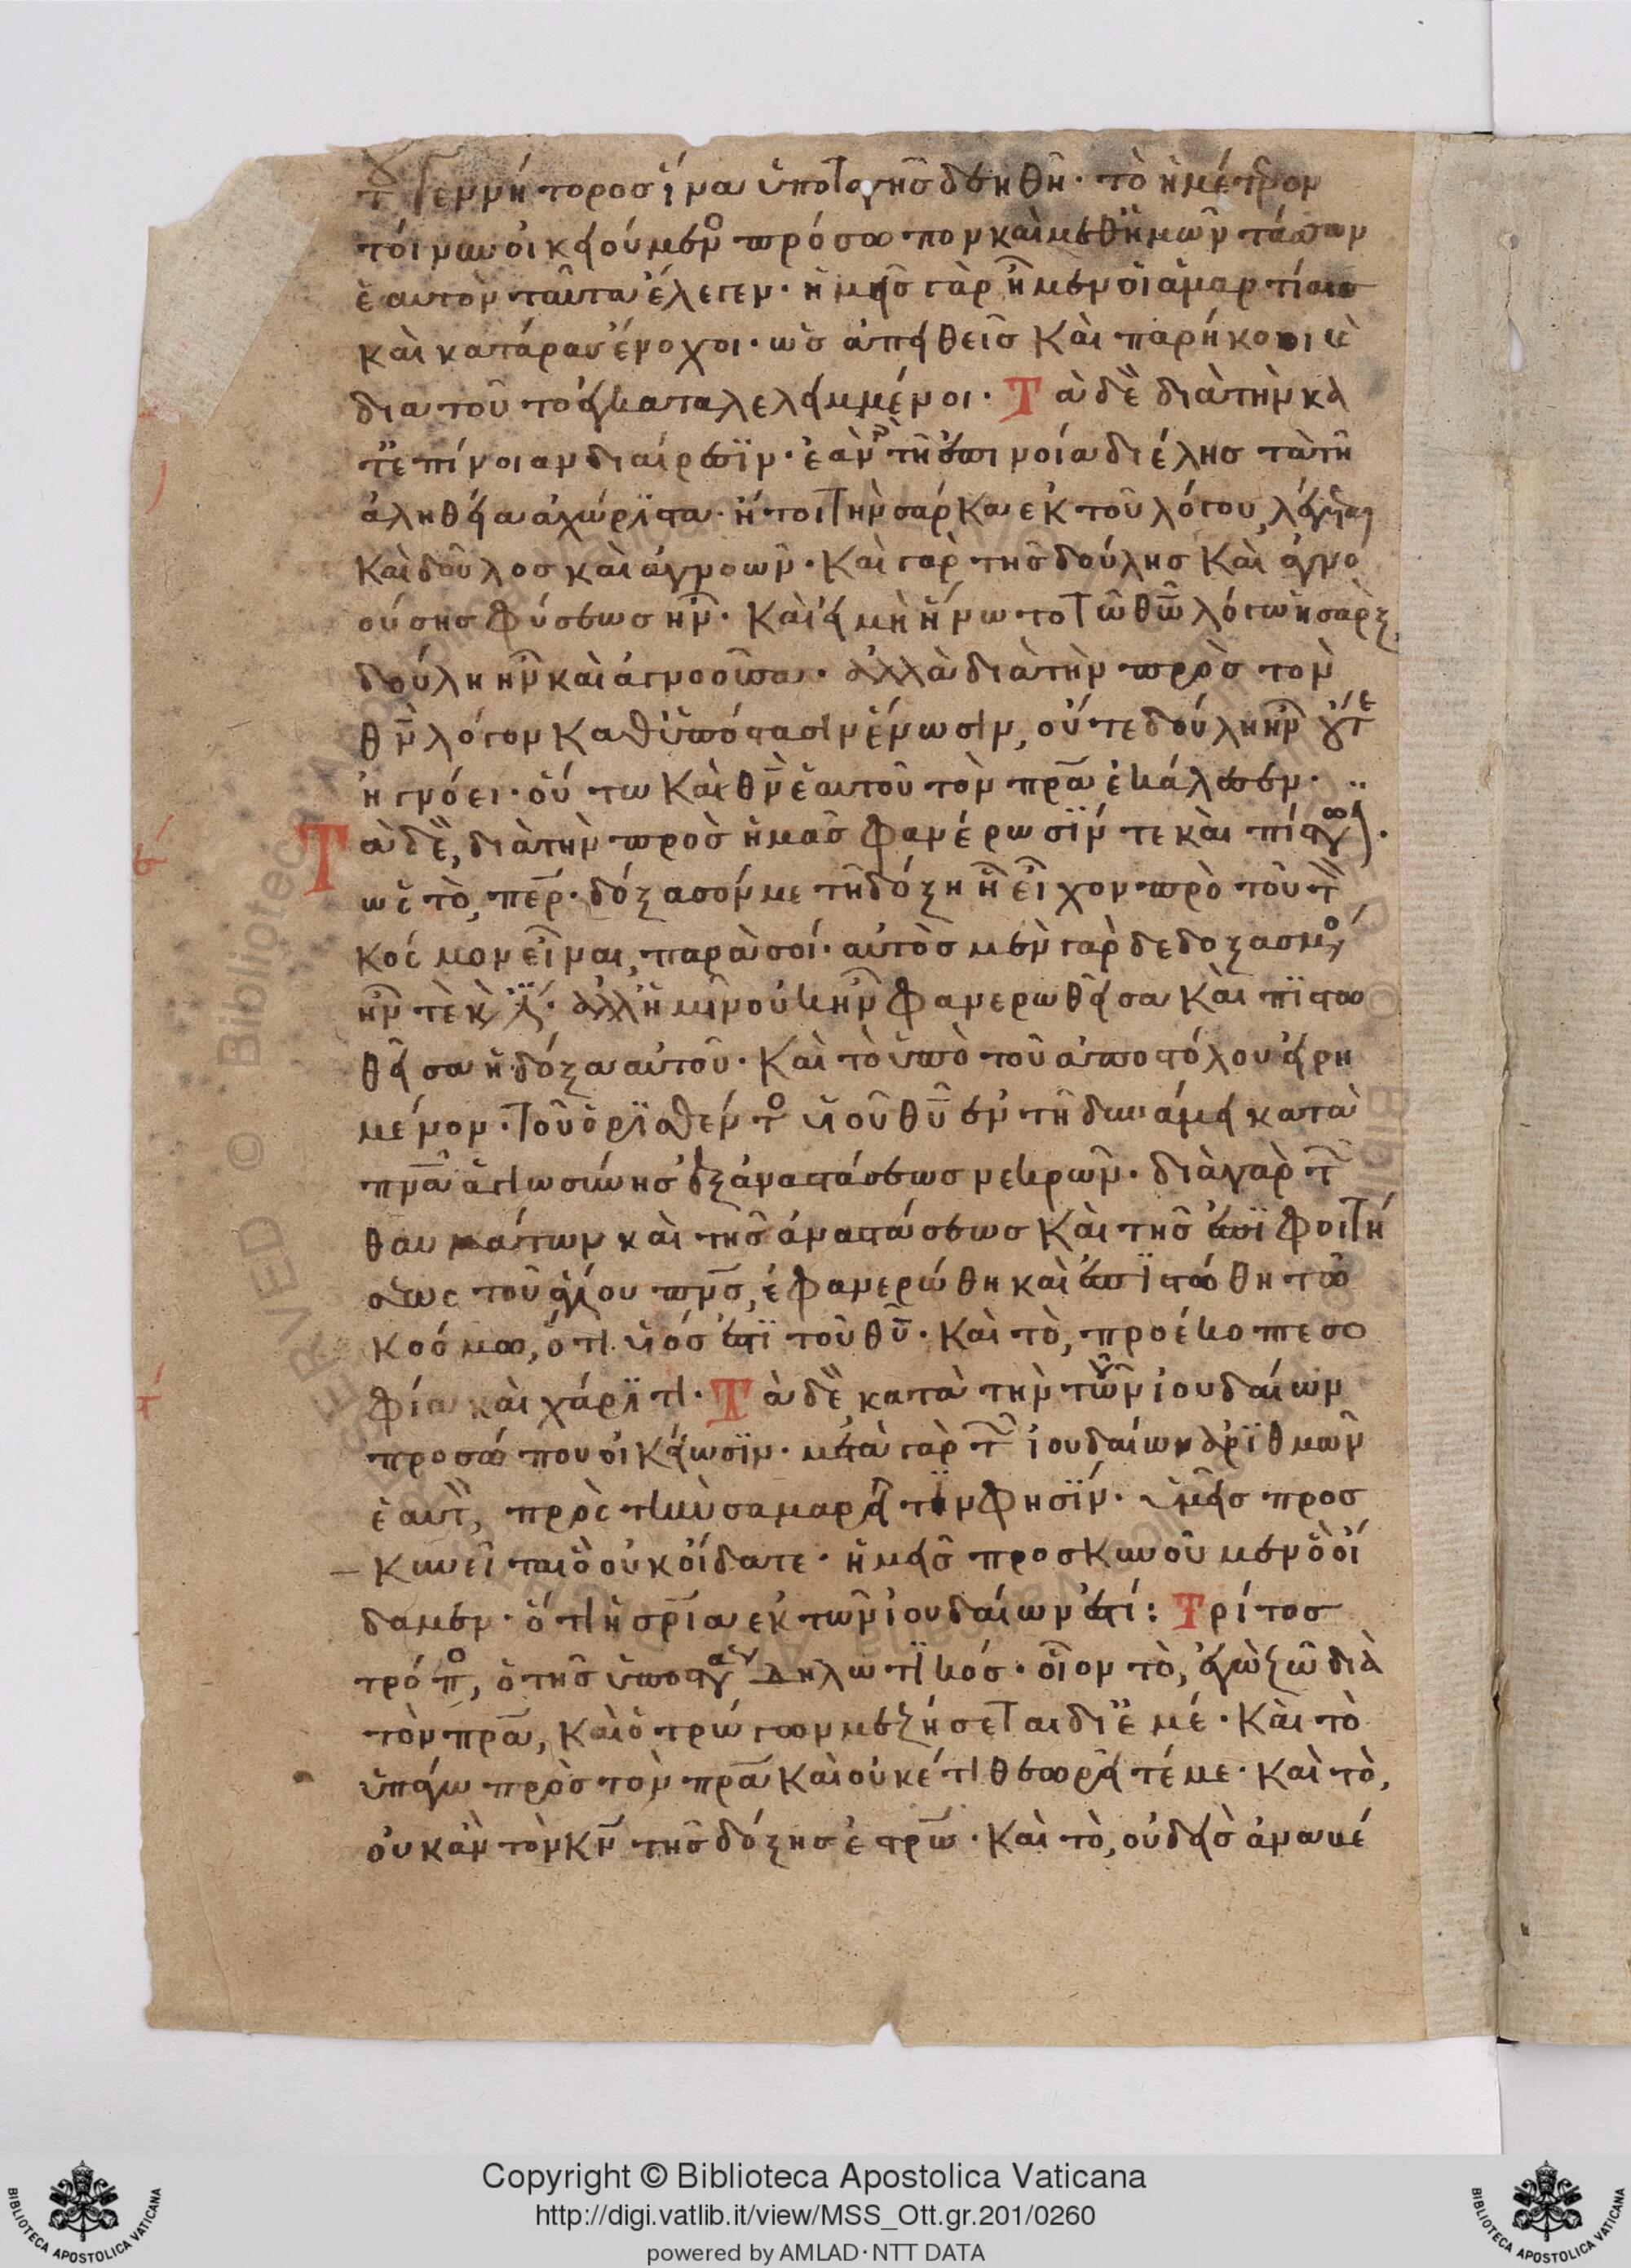 τοῦ γεννήτορος ἵνα ὑποταγῆς δεηθῆ· τὸ ἡμέτερον
τοίνυν οἰκειούμενος πρόσωπον καὶ μεθ' ἡμῶν τάσσων
ἑαυτὸν ταῦτα ἔλεγεν· ἡμεῖς γὰρ ἦμεν οἱ ἁμαρτίας
καὶ κατάρας ἔνοχοι· ὡς ἀπειθεῖς καὶ παρήκοοι καὶ
διατοῦτο ἐγκαταλελειμμένοι· Τὰ δὲ διὰ τὴν κα
τ' ἐπίνοιαν διαίρεσιν· ἐὰν γὰρ τῆ ἐπινοία διέλης τὰ τῆ
ἀληθεία ἀχώριστα· ἤτοι τὴν σάρκα ἐκ τοῦ λόγου, λέγεται
καὶ δοῦλος καὶ ἀγνοῶν· καὶ γὰρ τῆς δούλης καὶ ἀγνο
ούσης φύσεως ἦν· καὶ εἰ μὴ ἥνωτο τῶ θῶ λόγω ἡ σὰρξ,
δούλη ἦν καὶ ἀγνοοῦσα· ἀλλὰ διὰ τὴν πρὸς τὸν
θν λόγον καθ' ὑπόστασιν ἕνωσιν, οὔτε δούλη ἦν οὔτε
ἠγνόει· οὕτω καὶ θν ἑαυτοῦ τὸν πρα ἐκάλεσεν·
Τὰ δὲ, διὰ τὴν πρὸς ἡμᾶς φανέρωσίν τε καὶ πίστωσιν·
ὡς τὸ, περ· δόξασόν με τῆ δόξη ἧ εἶχον πρὸ τοῦ τὸν
κόσμον εἶναι, παρὰ σοί· αὐτὸς μὲν γὰρ δεδοξασμένος
ἦν τὲ καὶ ἔστιν· ἀλλ' ἡμῖν οὐκ ἦν φανερωθεῖσα καὶ πιστω
θεῖσα ἡ δόξα αὐτοῦ· καὶ τὸ ὑπὸ τοῦ ἀποστόλου εἰρη
μένον· τοῦ ὁρισθέντος υἱοῦ θυ ἐν τῆ δυνάμει κατὰ
πνα ἁγιωσύνης ἐξ ἀναστάσεως νεκρῶν· διὰ γὰρ τῶν
θαυμάτων καὶ τῆς ἀναστάσεως καὶ τῆς ἐπιφοιτή
σεως τοῦ ἁγίου πνς, ἐφανερώθη καὶ ἐπιστώθη τῶ
κόσμω, ὅτι υἱός ἐστι τοῦ θυ· καὶ τὸ, προέκοπτε σο
φία καὶ χάριτι· Τὰ δὲ κατὰ τὴν τοῦ τῶν ἰουδαίων
προσώπου οἰκείωσιν· μετὰ γὰρ τῶν ἰουδαίων ἀριθμῶν
ἑαυτὸν, πρὸς τὴν σαμαρεῖτιν φησίν· ὑμεῖς προσ
κυνεῖται ὃ οὐκ οἴδατε· ἡμεῖς προσκυνοῦμεν ὃ οἴ
δαμεν· ὅτι ἡ σρία ἐκ τῶν ἰουδαίων ἐστί: Τρίτος
τρόπος, ὁ τῆς ὑποστάσεως δηλωτικός· οἷον τὸ, ἐγὼ ζῶ διὰ
τὸν πρα, καὶ ὁ τρώγων με ζήσεται δι' ἐμέ· καὶ τὸ
ὑπάγω πρὸς τὸν πρα καὶ οὐκέτι θεωρεῖτέ με· καὶ τὸ,
οὐκ ἂν τὸν κν τῆς δόξης ἐστρω· καὶ τὸ, οὐδεὶς ἀναβέ
Copyright © Biblioteca Apostolica Vaticana
http://digi.vatlib.it/view/MSS_Ott.gr.201/0260
powered by AMLAD·NTT DATA
BIBLIOTECA APOSTOLICA VATICANA
BIBLIOTECA APOSTOLICA VATICANA